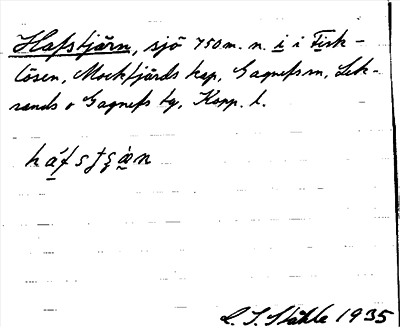 Hafstjärn, sjö 750 m. n. i i Fisk-
lösen, Mockfjärds kap, Gagnefs sn, Lek-
sands o Gagnefs tg, Kopp. l.
C. I. Ståhle 1935